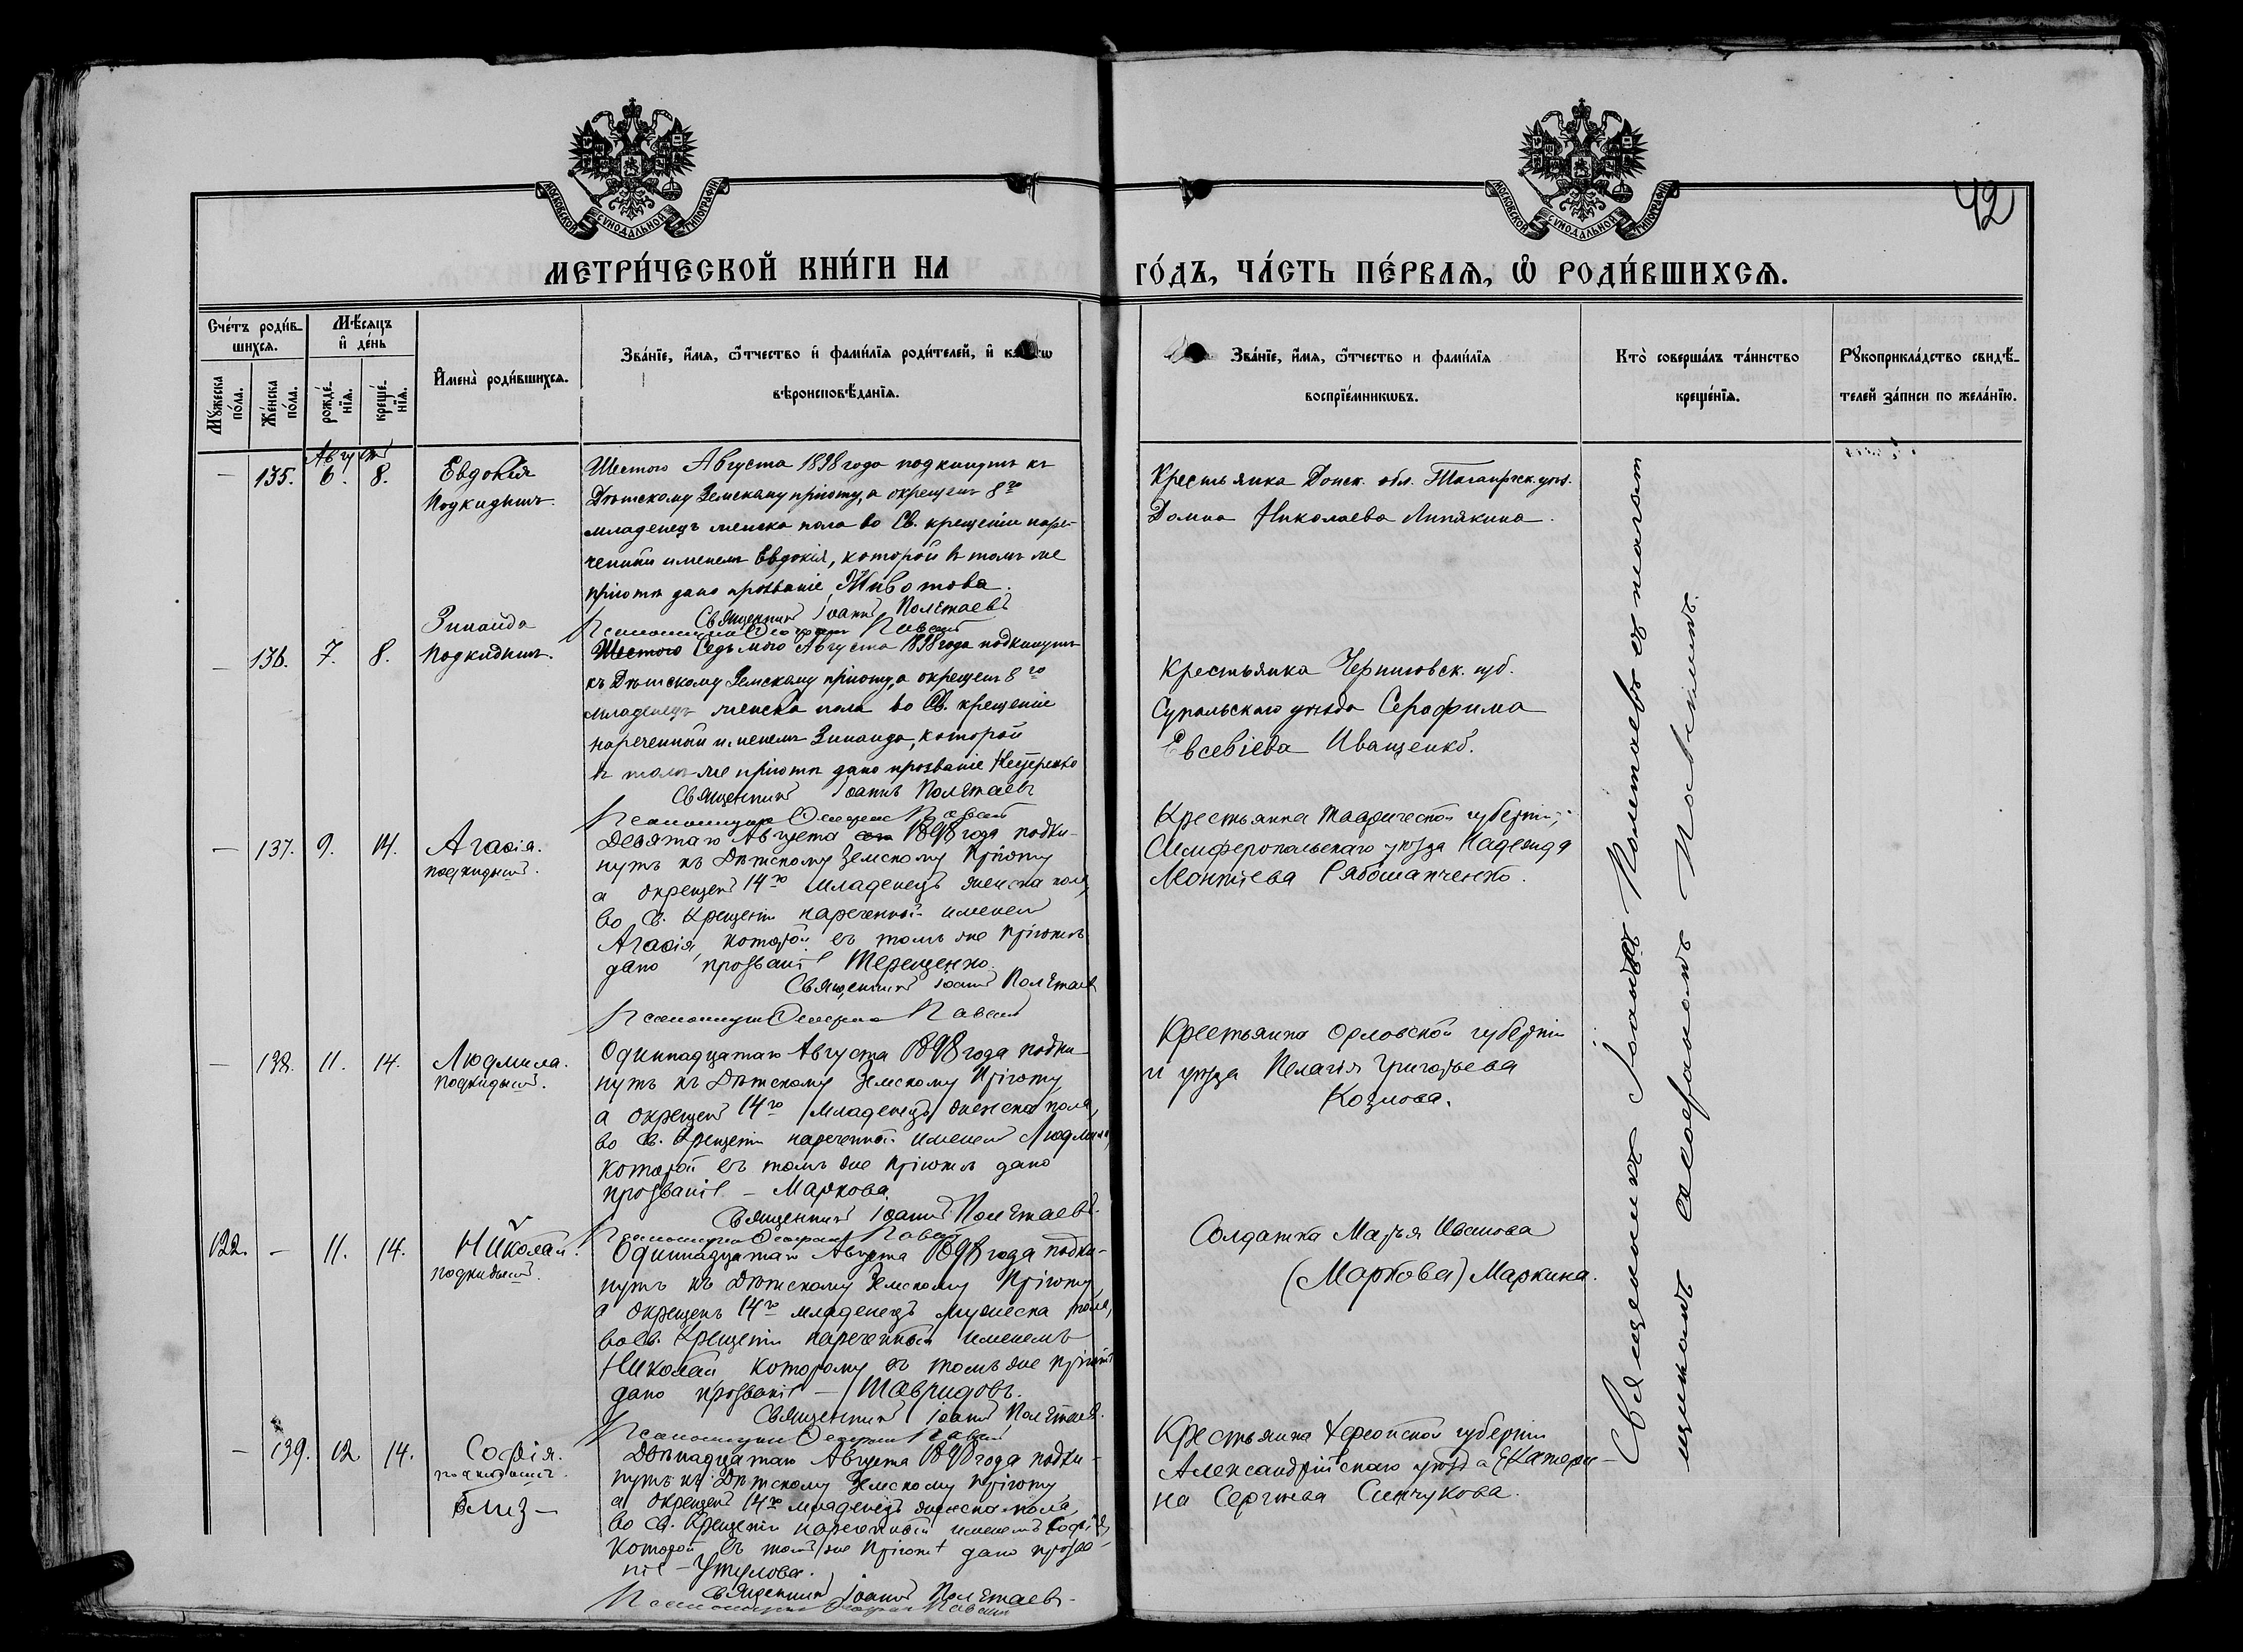 МОСКОВСКОЙ СУНОДАЛЬНОЙ ТИПОГРАФІИ
МОСКОВСКОЙ СУНОДАЛЬНОЙ ТИПОГРАФІИ
42
МЕТРИ́ЧЕСКОЙ КНИ́ГИ НА
ГО́ДЪ, ЧА́СТЬ ПЕ́РВАѦ, Ѡ҆ РОДИ́ВШИХСѦ.
Сче́тъ роди́в-
шихсѧ.
Мꙋ́жеска по́ла.
Же́нска по́ла.
Мѣ́сѧцъ
и҆ де́нь
рожде́-
нїѧ.
креще́-
нїѧ.
И҆мена̀ роди́вшихсѧ.
Зва́нїе, и҆́мѧ, ѻ҆́тчество и҆ фами́лїѧ роди́телей, и҆
вѣроисповѣ́данїѧ.
Зва́нїе, и҆́мѧ, ѻ҆́тчество и фами́лїѧ
воспрїе́мникѡвъ.
Кто̀ соверша́лъ та́инство
креще́нїѧ.
Рꙋкоприкла́дство свидѣ́-
телей за́писи по жела́нїю.
Август
— 135. 6. 8.
Евдокія
Подкидышъ.
Шестого Августа 1898 года подкинутъ къ
Дѣтскому Земскому пріюту, а окрещенъ 8го
младенецъ женска пола во Св. крещеніи наре-
ченный именемъ Евдокія, которой въ томъ же
пріютѣ дано прозваніе Животова.
Священникъ Іоаннъ Полетаевъ
Псаломщикъ
Крестьянка Донск. обл. Таганрогск. уѣз.
Домна Николаева Липякина.
— 136. 7. 8.
Зинаида
Подкидышъ.
Шестого Седьмого Августа 1898 года подкинутъ
къ Дѣтскому Земскому пріюту, а окрещенъ 8го
младенецъ женска пола во Св. крещеніи
нареченный именемъ Зинаида, которой
въ томъ-же пріютѣ дано прозваніе
Священникъ Іоаннъ Полетаевъ
Псаломщикъ
Крестьянка Черниговск. губ.
уѣзда Серафима
Евсевіева Иващенко.
— 137. 9. 14.
Агаѳія.
подкидышъ.
Девятаго Августа 1898 года подки-
нутъ къ Дѣтскому Земскому Пріюту
а окрещенъ 14го младенецъ женска пола,
во Св. Крещеніи нареченной именемъ
Агаѳія, которой въ томъ же Пріютѣ
дано прозваніе Терещенко.
Священникъ Іоаннъ Полетаевъ
Псаломщикъ
Крестьянка Таврической губерніи,
Симферопольскаго уѣзда Надежда
Леонтіева Рябошапченко.
— 138. 11. 14.
Людмила.
подкидышъ.
Одиннадцатаго Августа 1898 года подки-
нутъ къ Дѣтскому Земскому Пріюту
а окрещенъ 14го младенецъ женска пола,
во Св. Крещеніи нареченной именемъ Людмила,
которой въ томъ же Пріютѣ дано
прозваніе — Маркова.
Священникъ Іоаннъ Полетаевъ.
Псаломщикъ
Крестьянка Орловской губерніи
и уѣзда Пелагія Григорьева
Козлова.
122. — 11. 14.
Николай.
подкидышъ.
Одиннадцатаго Августа 1898 года подки-
нутъ къ Дѣтскому Земскому Пріюту,
а окрещенъ 14го младенецъ мужеска пола,
во Св. Крещеніи нареченный именемъ
Николай которому въ томъ же Пріютѣ
дано прозваніе — Тавридовъ.
Священникъ Іоаннъ Полетаевъ.
Псаломщикъ
Солдатка Марья Иванова
(Маркова) Маркина.
— 139. 12 14.
Софія.
подкидышъ.
близ —
Двѣнадцатаго Августа 1898 года подки-
нутъ къ Дѣтскому Земскому Пріюту
а окрещенъ 14го младенецъ женска пола,
во Св. Крещеніи нареченный именемъ Софія,
которой въ томъ же Пріютѣ дано прозва-
ніе —
Священникъ Іоаннъ Полетаевъ.
Псаломщикъ
Крестьянка Херсонской губерніи
Александрійскаго уѣзда Екатери-
на Сергѣева Синчукова.
Священникъ Іоаннъ Полетаевъ съ псалом-
щикомъ